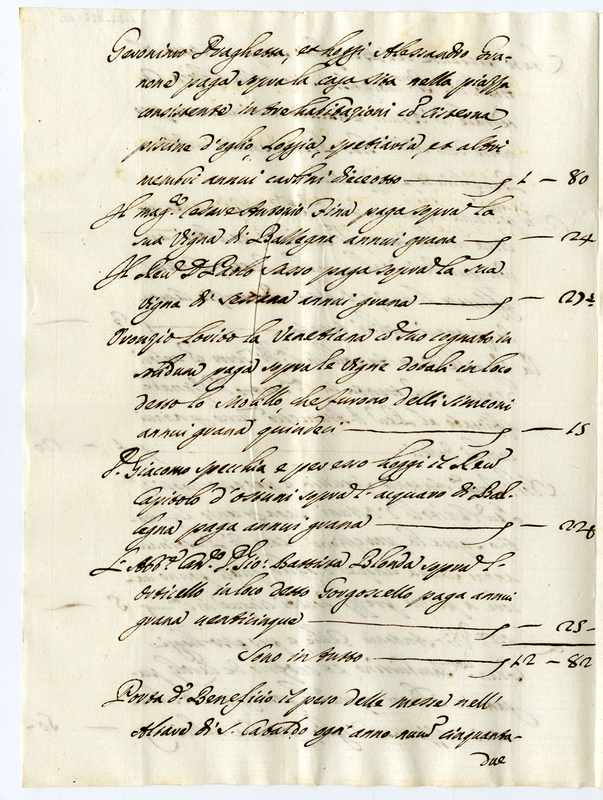 Geronimo Draghetta, et hoggi Alesandro Gra-
none paga sopra la casa sita nella piazza
consistente in tre habitazioni cō cisterna
piscine d'oglio, loggia, spetiaria, et altri
membri annui carlini diceotto — 1 — 80
Il mag.co Cesare Antonio Fina paga sopra la
sua vigna di Ballegna annui grana — 24
Il Reu.do D. Carlo Sasso paga sopra la sua
vigna di annui grana —
Oronzio Lovito la Venetiana cō suo cognato in
paga sopra le vigne dotali in loco
detto lo che furono delli Simeoni
annui grana quindeci — 15
D. Giacomo Specchia e per esso hoggi il Reu.do
Capitolo d'Ostuni sopra l'acquaro di Bal-
legna paga annui grana —
L'Abb.e D. Gio: Battista Blonda sopra l'
orticello in loco detto Gorgoscello paga annui
grana venticinque — 25 -
Sono in tutto — 12 — 82
Porta d.o Beneficio il peso delle messe nell'
Altare di S. Cataldo ogn'anno num.o cinquanta-
due